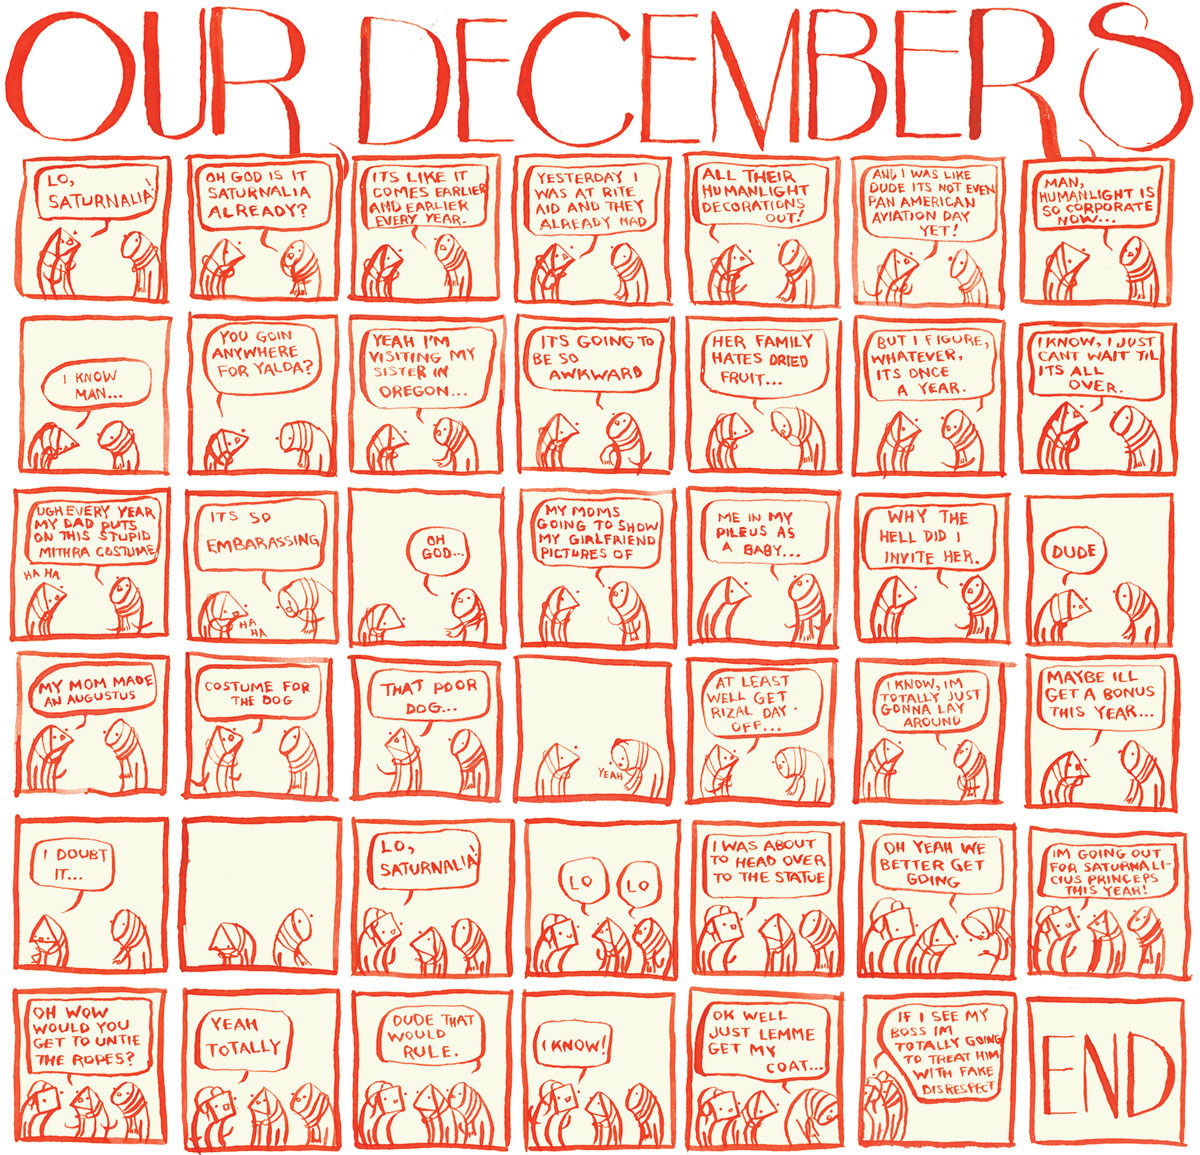 OUR DECEMBERS
LO,
SATURNALIA!
OH GOD IS IT
SATURNALIA
ALREADY?
ITS LIKE IT
COMES EARLIER
AND EARLIER
EVERY YEAR.
YESTERDAY I
WAS AT RITE
AID AND THEY
ALREADY HAD
ALL THEIR
HUMANLIGHT
DECORATIONS
OUT!
AND I WAS LIKE
DUDE ITS NOT EVEN
PAN AMERICAN
AVIATION DAY
YET!
MAN,
HUMANLIGHT IS
SO CORPORATE
NOW...
I KNOW
MAN...
YOU GOIN
ANYWHERE
FOR YALDA?
YEAH I'M
VISITING MY
SISTER IN
OREGON...
ITS GOING TO
BE SO
AWKWARD
HER FAMILY
HATES DRIED
FRUIT...
BUT I FIGURE,
WHATEVER,
ITS ONCE
A YEAR.
I KNOW, I JUST
CANT WAIT TIL
ITS ALL
OVER.
UGH EVERY YEAR
MY DAD PUTS
ON THIS STUPID
MITHRA COSTUME
HA HA
ITS SO
EMBARASSING
HA
HA
OH
GOD...
MY MOMS
GOING TO SHOW
MY GIRLFRIEND
PICTURES OF
ME IN MY
PILEUS AS
A BABY...
WHY THE
HELL DID I
INVITE HER.
DUDE
MY MOM MADE
AN AUGUSTUS
COSTUME FOR
THE DOG
THAT POOR
DOG...
YEAH
AT LEAST
WELL GET
RIZAL DAY
OFF...
I KNOW, IM
TOTALLY JUST
GONNA LAY
AROUND
MAYBE ILL
GET A BONUS
THIS YEAR...
I DOUBT
IT...
LO,
SATURNALIA!
LO
LO
I WAS ABOUT
TO HEAD OVER
TO THE STATUE
OH YEAH WE
BETTER GET
GOING
IM GOING OUT
FOR SATURNALI-
CIUS PRINCEPS
THIS YEAR!
OH WOW
WOULD YOU
GET TO UNTIE
THE ROPES?
YEAH
TOTALLY
DUDE THAT
WOULD
RULE.
I KNOW!
OK WELL
JUST LEMME
GET MY
COAT...
IF I SEE MY
BOSS IM
TOTALLY GOING
TO TREAT HIM
WITH FAKE
DISRESPECT
END